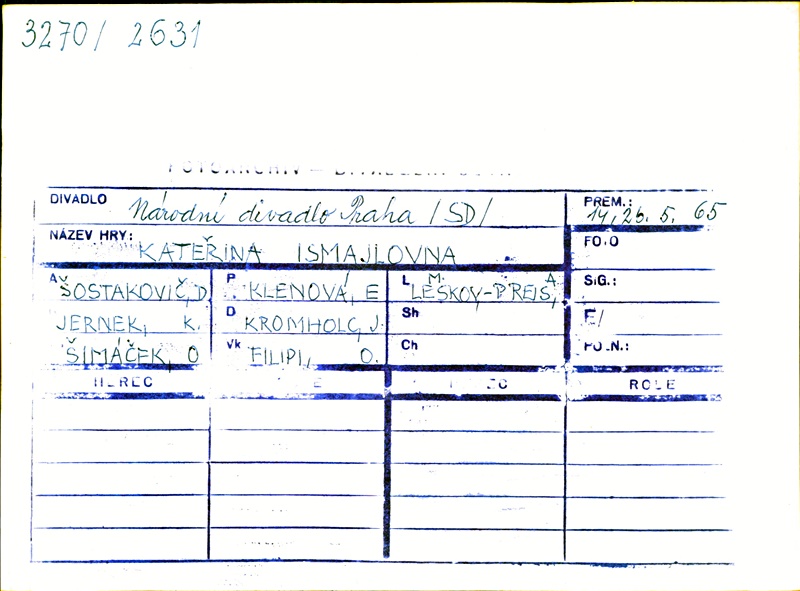 3270/ 2631
FOTOARCHIV —
DIVADLO Národní divadlo Praha /SD/ PREM.: 14, 26. 5. 65
NÁZEV HRY: KATEŘINA ISMAJLOVNA FOTO
A ŠOSTAKOVIČ, D. P KLENOVÁ, E L M. A. LESKOV-PREIS, SIG.:
JERNEK, K. D KROMHOLC, J. Sh E/
ŠIMÁČEK, O Vk FILIPI, O. Ch POZN.:
HEREC ROLE